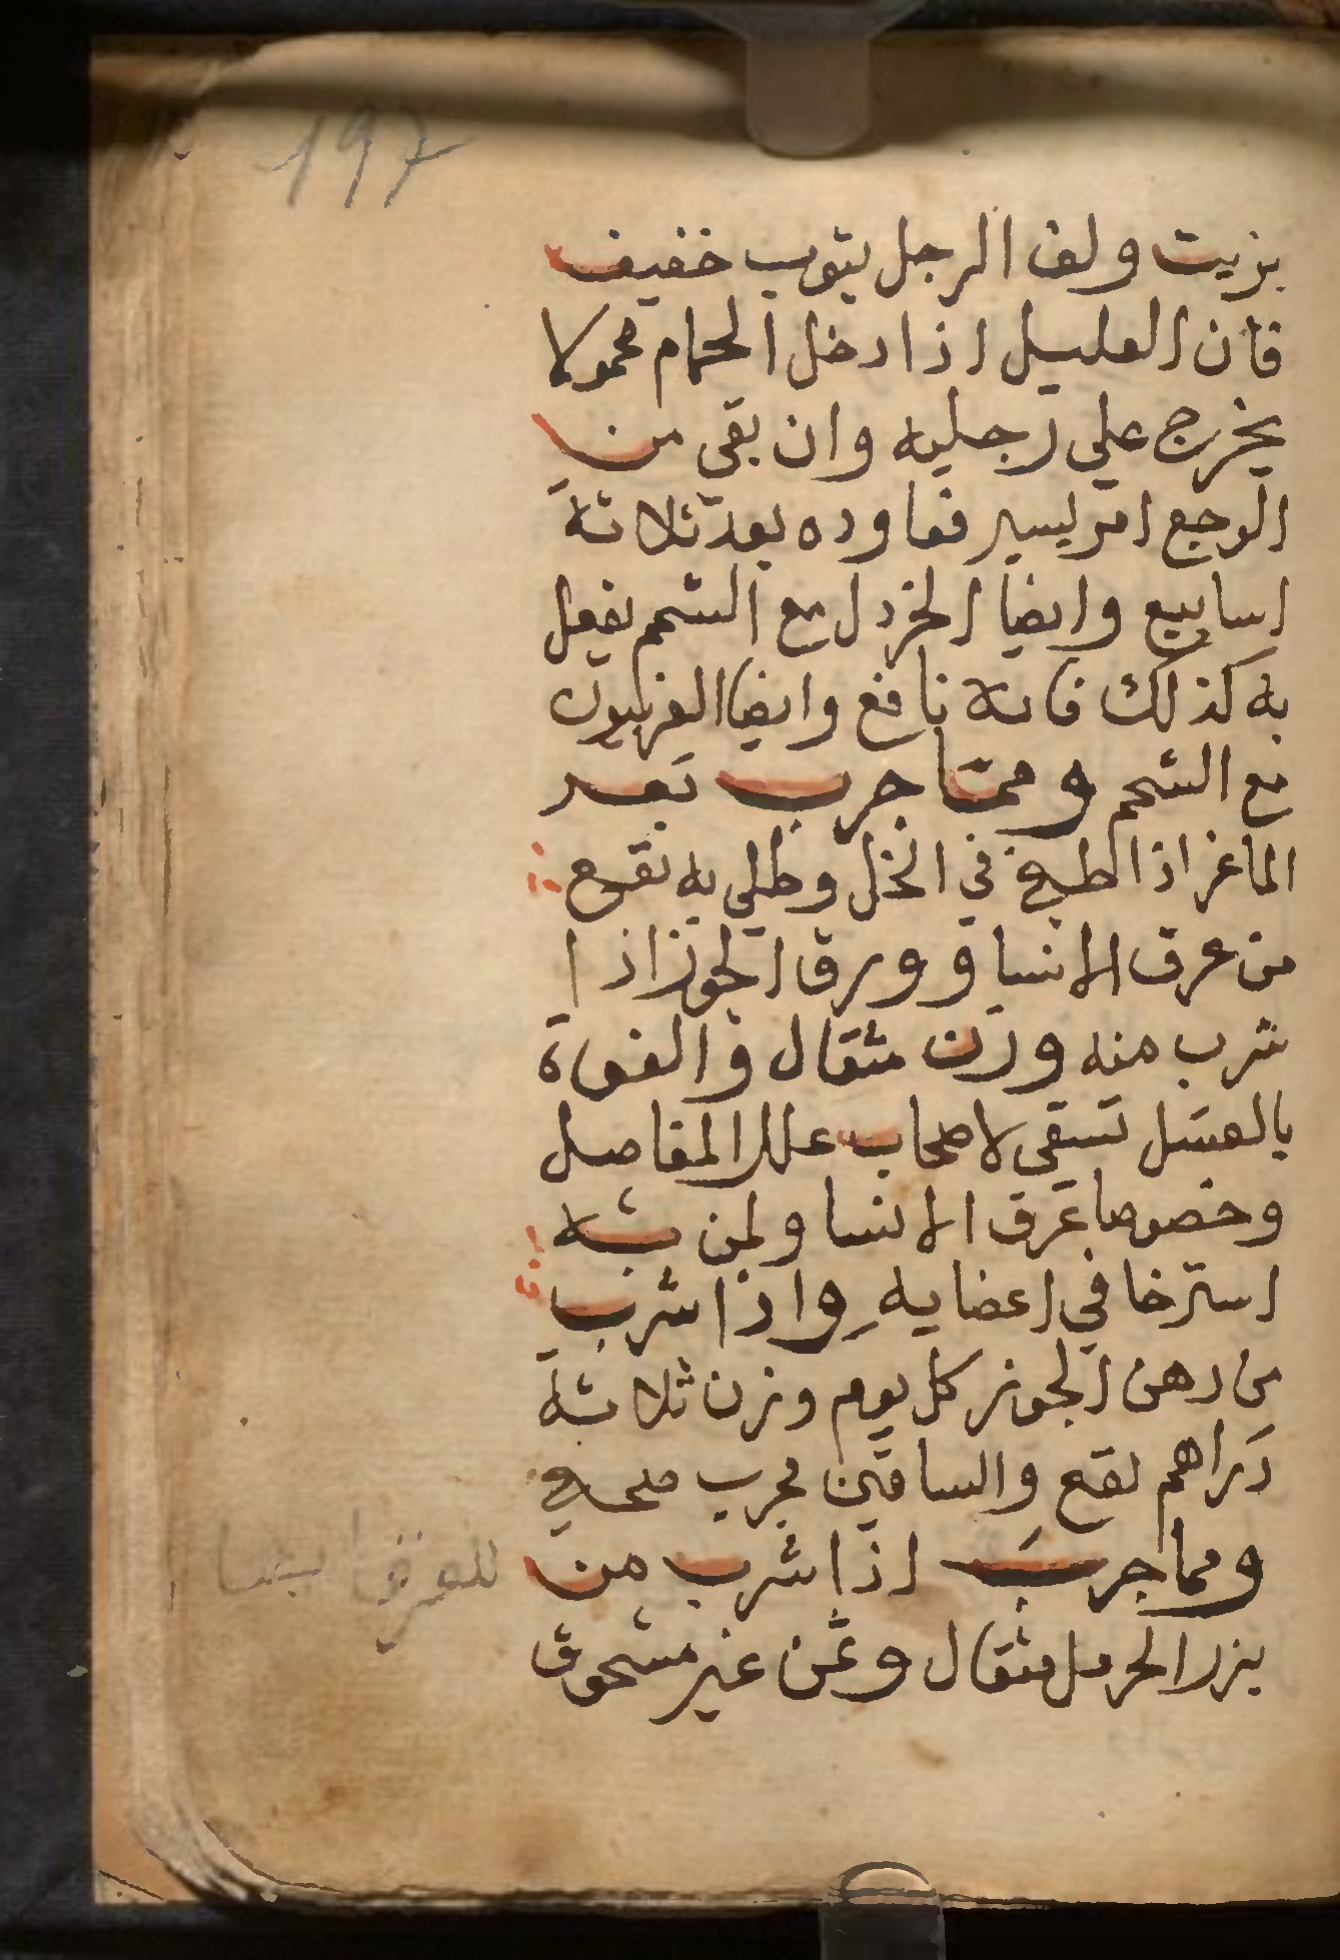 197
بزيت ولف الرجل بثوب خفيف
فان العليل اذا دخل الحمام محمولا
يخرج علي رجليه وان بقي من
الوجع امر يسير فعاوده بعد ثلاثة
اسابيع وايضا الخردل مع الشحم يفعل
به كذلك فانه نافع وايضا الفربيون
مع الشحم ومما جرب بعر
الماعز اذا طبخ في الخل وطلي به نفع
من عرق الانسا وورق الجوز اذا
شرب منه وزن مثقال والفوة
بالعسل تسقي لاصحاب علل المفاصل
وخصوصا عرق الانسا ولمن به
استرخا في اعضايه واذا شرب
من دهن الجوز كل يوم وزن ثلاثة
دراهم نفع والساقين مجرب صحيح
ومما جرب اذا شرب من
بزر الحرمل مثقال وثمن غير مسحوق